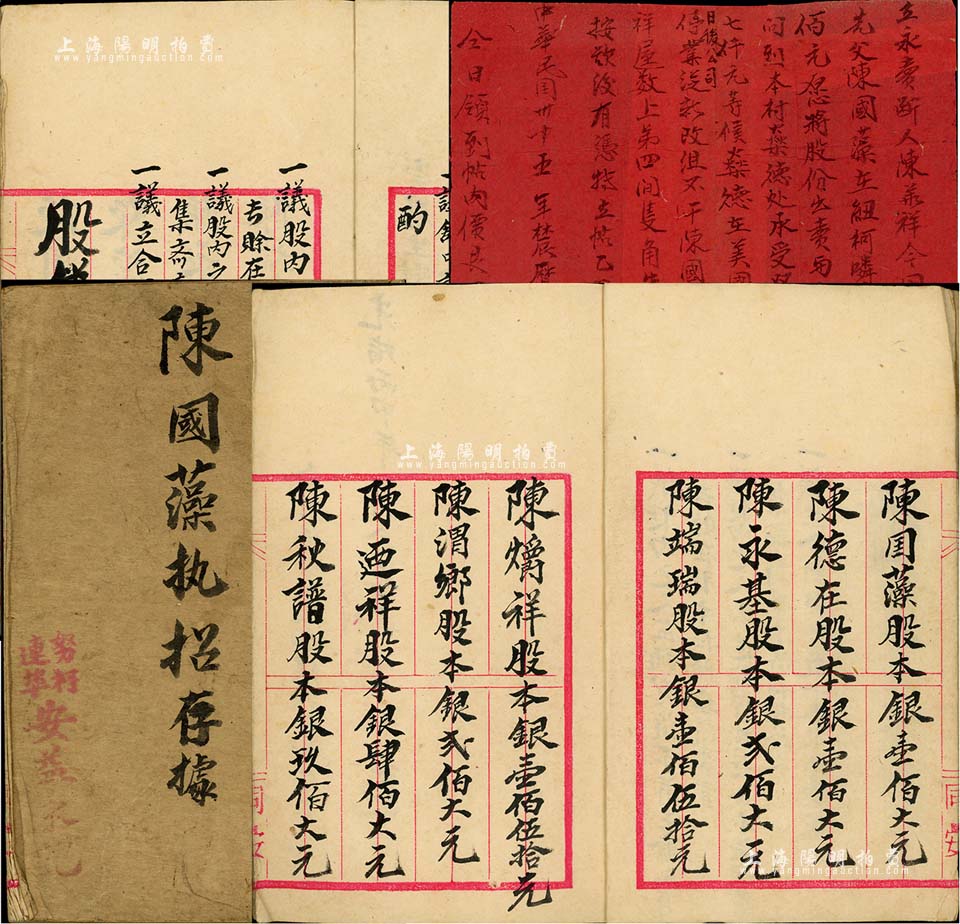 上海陽明拍賣
www.yangmingauction.com
酌
一議股內
去賒在
一議股內之
集斋
一議立合
股
立永賣斷人陳業祥今因
先父陳國藻在紐柯隣
佰元愿將股份出賣
问到本村燊德处承受
七千元等候燊德在美國
日後公司
停業從新改组不干陳國
祥屋数上第四间隻角
按欲後有憑特立帖乙
中華民国卅五年農曆
今日領到帖内價艮
陳國藻执招存據
努柯
連埠
安益
陳国藻股本銀壹佰大元
陳德在股本銀壹佰大元
陳永基股本銀弍佰大元
陳端瑞股本銀壹佰伍拾元
同安
陳燆祥股本銀壹佰伍拾元
陳渭鄉股本銀弍佰大元
陳迺祥股本銀肆佰大元
陳秧譜股本銀玖佰大元
同安
上海陽明拍賣
www.yangmingauction.com
上海陽明拍賣
www.yangmingauction.com
上海陽明拍賣
www.yangmingauction.com